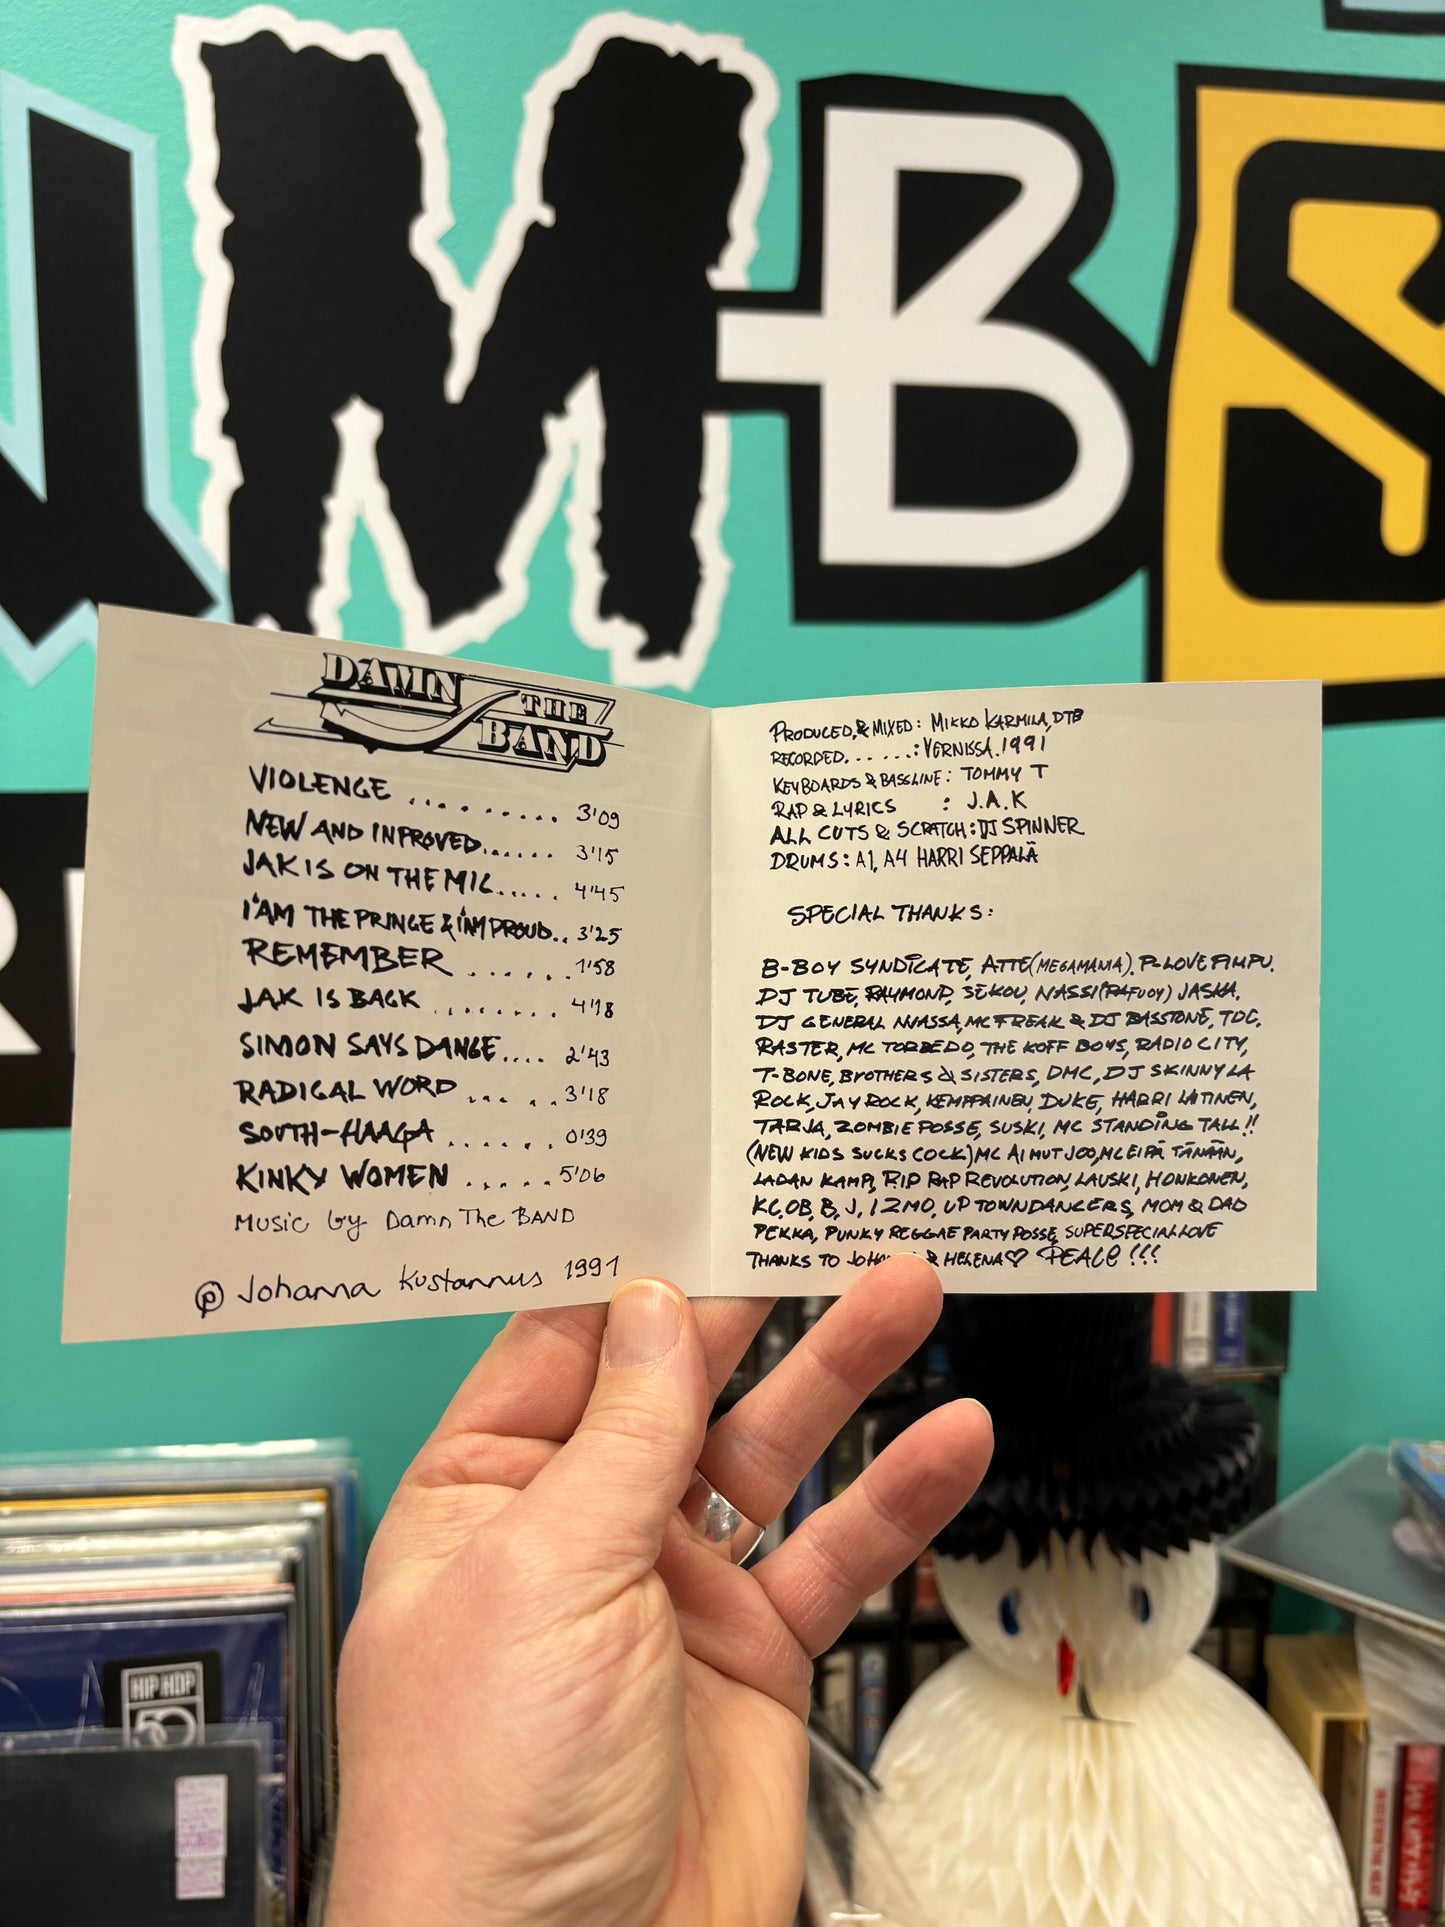 MBS
DAMN THE BAND
VIOLENCE .......... 3'09
NEW AND INPROVED...... 3'15
JAK IS ON THE MIC..... 4'45
I'AM THE PRINCE & I'AM PROUD.. 3'25
REMEMBER ......1'58
JAK IS BACK ........ 4'18
SIMON SAYS DANCE.... 2'43
RADICAL WORD ... . .3'18
SOUTH-HAAGA ...... 0'39
KINKY WOMEN ..... 5'06
MUSIC by Damn The BAND
℗ Johanna Kustannus 1991
PRODUCED,& MIXED: MIKKO KARMILA, DTB
RECORDED. . . . . . .: VERNISSA.1991
KEYBOARDS & BASSLINE: TOMMY T
RAP & LYRICS : J.A.K
ALL CUTS & SCRATCH: DJ SPINNER
DRUMS: A1, A4 HARRI SEPPÄLÄ
SPECIAL THANKS:
B-BOY SYNDICATE, ATTE(MEGAMANIA). P-LOVE PIMPU.
DJ TUBE, RAYMOND, SEKOU, NASSI JASKA,
DJ GENERAL NJASSA, MC FREAK & DJ BASSTONE, TDC,
RASTER, MC TORBEDO, THE KOFF BOYS, RADIO CITY,
T-BONE, BROTHERS & SISTERS, DMC, DJ SKINNY LA
ROCK, JAY ROCK, KEMPPAINEN, DUKE, HARRI LAITINEN,
TARJA, ZOMBIE POSSE, SUSKI, MC STANDING TALL !!
(NEW KIDS SUCKS COCK) MC AI MUT JOO, MC EIPÄ TÄNÄÄN,
LADAN KAMP, RIP RAP REVOLUTION, LAUSKI, HONKONEN,
KC, OB, B, J, IZMO, UP TOWN DANCERS, MOM & DAD
PEKKA, PUNKY REGGAE PARTY POSSE, SUPERSPECIAL LOVE
THANKS TO & HELENA♡ PEACE !!!
HIP HOP
50